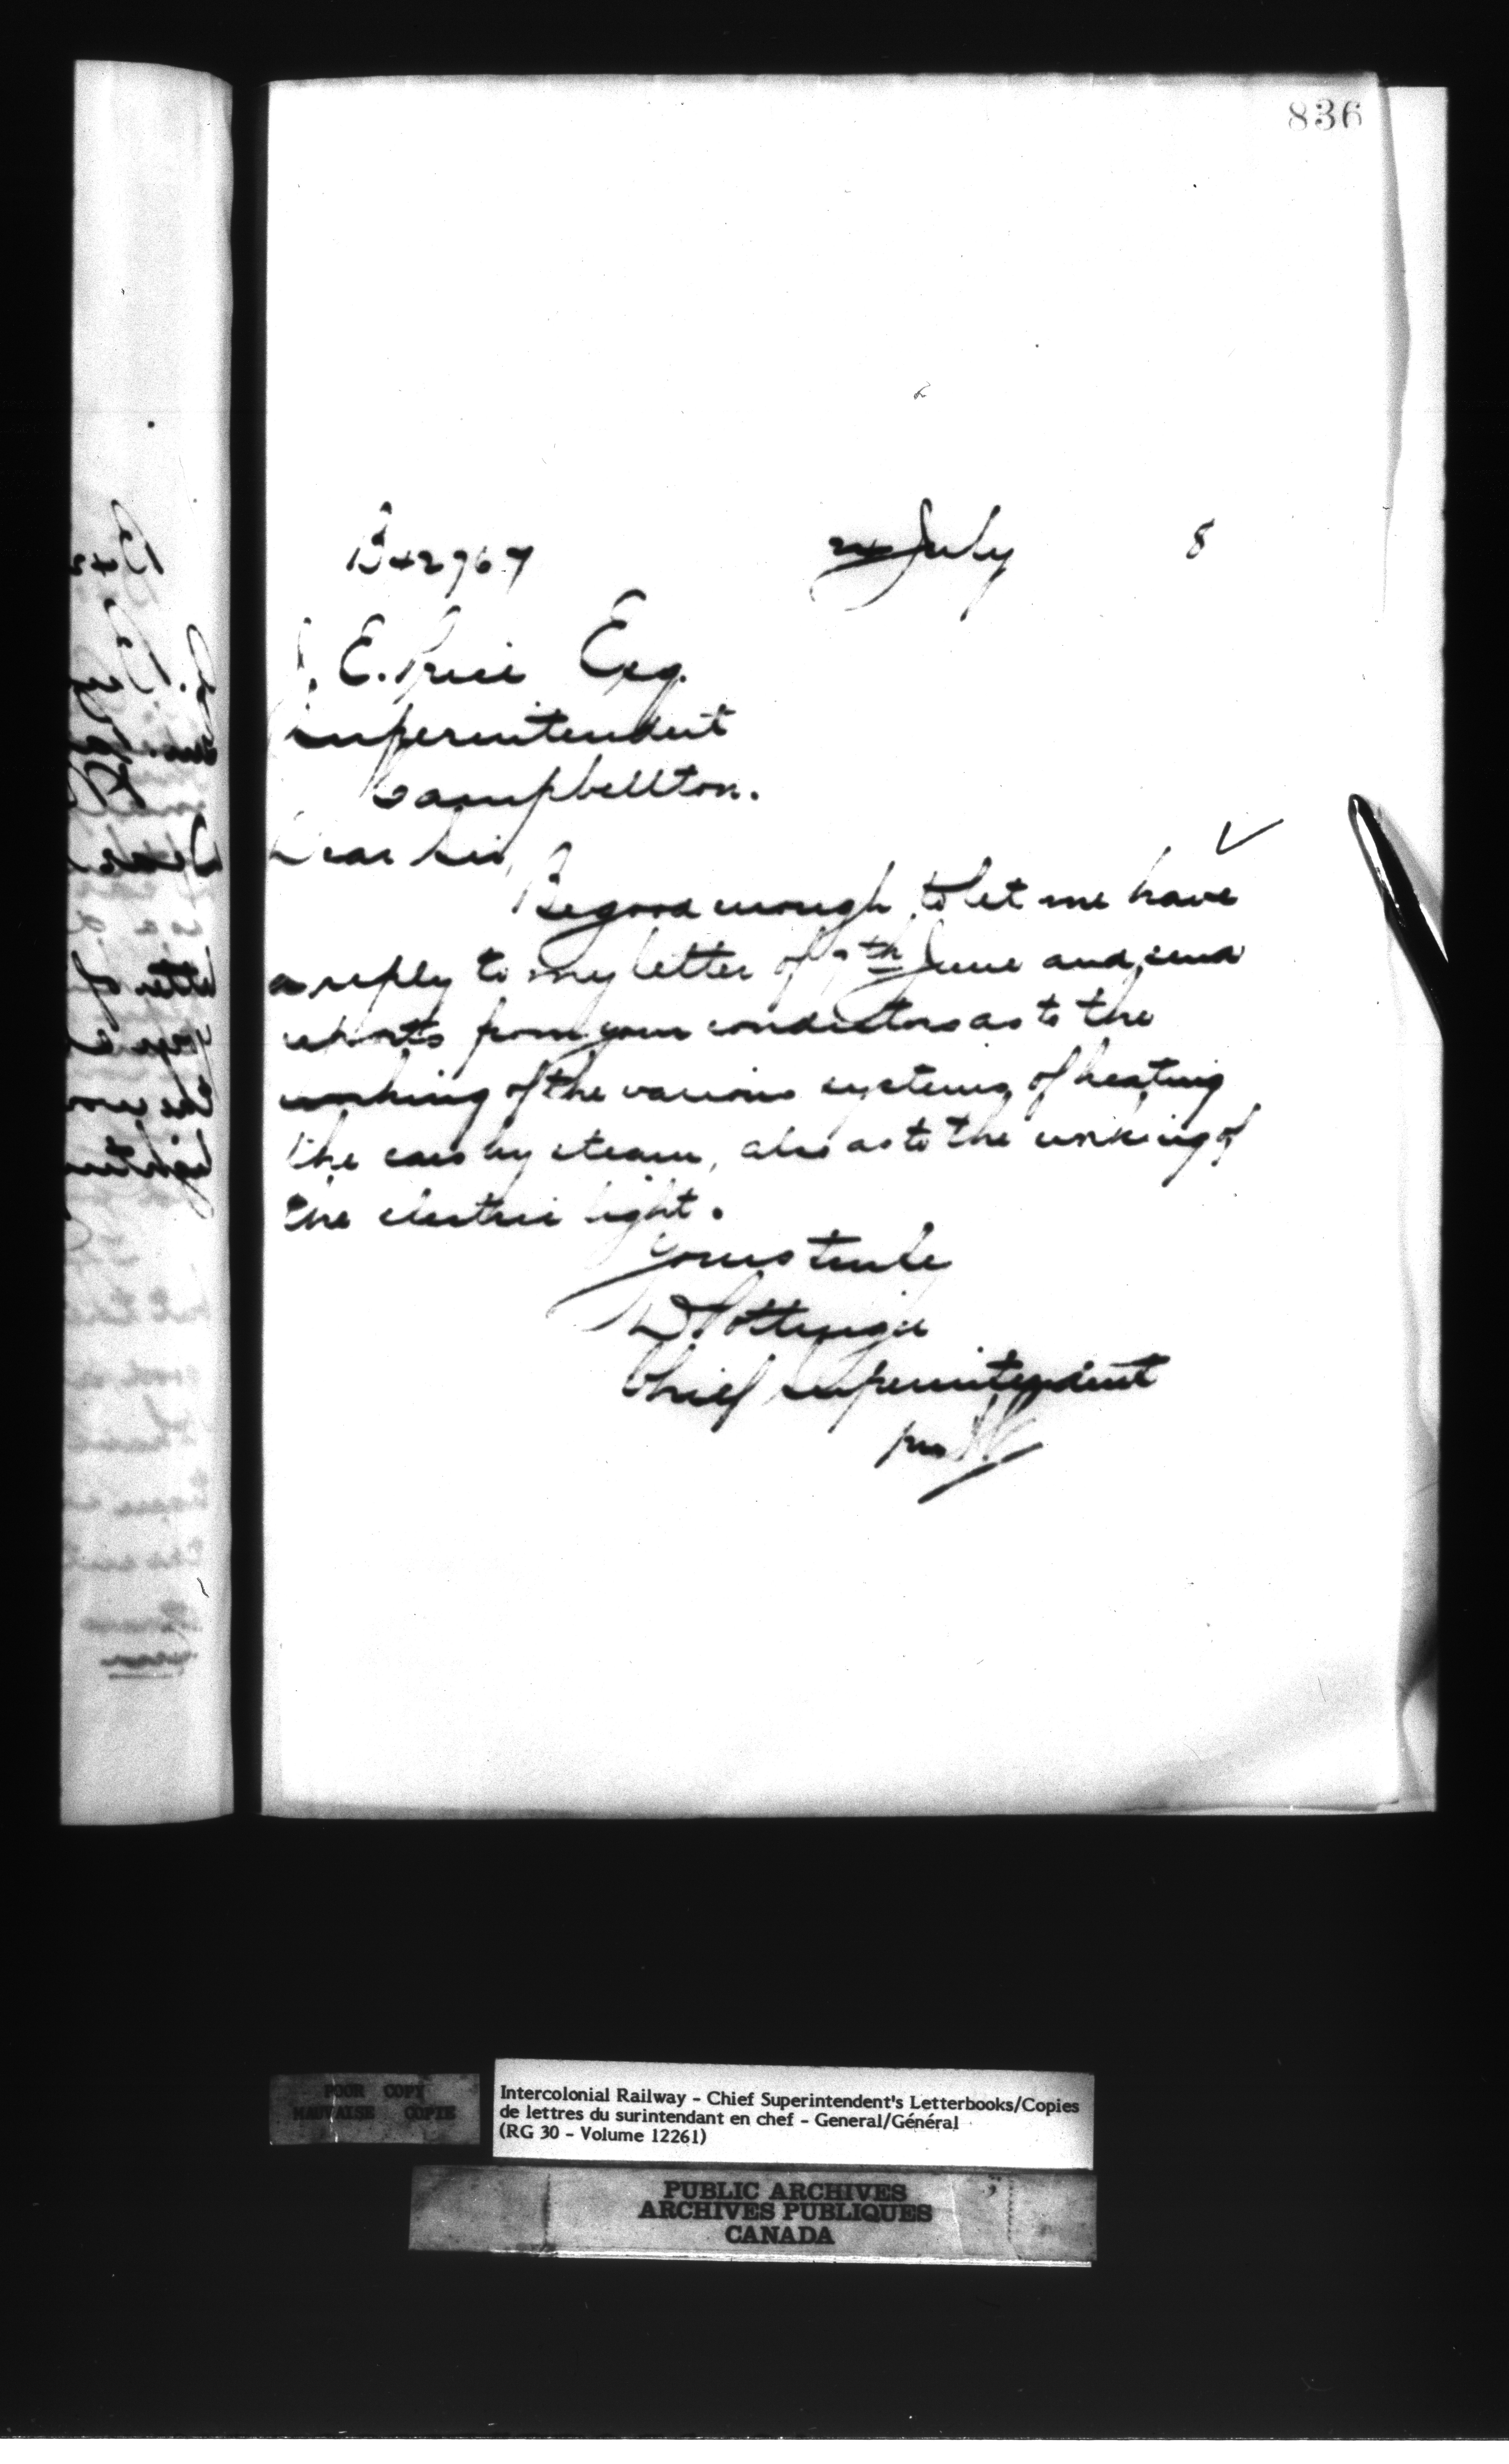 836
B42967 24 July 8
J. E. Price Esq.
Superintendent
Campbellton.
Dear Sir,
Be good enough to let me have
a reply to my letter of 7th June and send
reports from your conductors as to the
working of the various systems of heating
the cars by steam, also as to the working of
the electric light.
Yours truly
D Pottinger
Chief Superintendent
per
POOR COPY
MAUVAISE COPIE
Intercolonial Railway - Chief Superintendent's Letterbooks/Copies
de lettres du surintendant en chef - General/Général
(RG 30 - Volume 12261)
PUBLIC ARCHIVES
ARCHIVES PUBLIQUES
CANADA